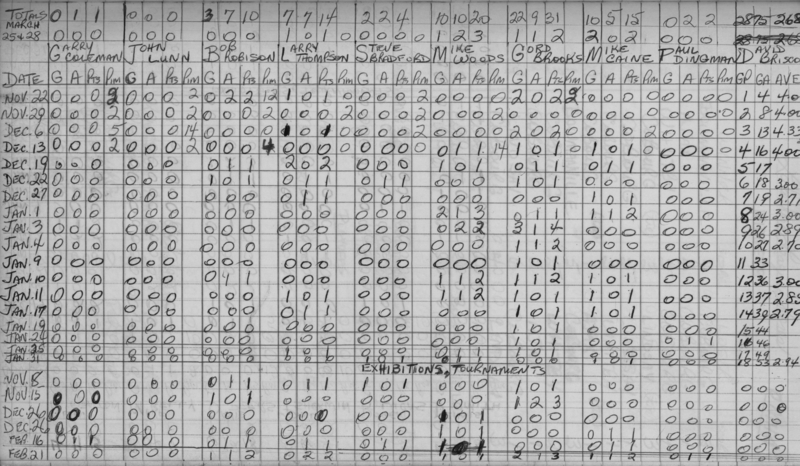 TOTALS 0 1 1 0 0 0 3 7 10 7 7 14 2 2 4 10 10 20 22 9 31 10 5 15 0 2 2 2875 268
MARCH
25&28 0 0 0 0 0 0 0 0 0 1 0 1 0 0 0 1 2 3 1 1 2 2 0 2 0 0 0
GARRY COLEMAN JOHN LUNN BOB ROBISON LARRY THOMPSON STEVE BRADFORD MIKE WOODS GORD BROOKS MIKE CAINE PAUL DINGMAN DAVID BRISCO
DATE G A Pts Pim G A Pts Pim G A Pts Pim G A Pts Pim G A Pts Pim G A Pts Pim G A Pts Pim G A Pts Pim G A Pts Pim GP GA AVE
NOV. 22 0 0 0 2 0 0 0 2 0 2 2 12 1 0 1 0 0 0 2 0 0 0 2 0 2 2 0 0 0 0 0 0 1 4 4.00
NOV. 29 0 0 0 2 0 0 0 2 0 0 0 2 0 0 0 2 0 0 0 2 0 0 0 0 0 0 0 0 0 2 0 0 0 2 8 4.00
DEC. 6 0 0 0 5 0 0 0 14 0 0 0 2 1 0 1 2 0 0 0 2 0 0 0 2 0 2 0 0 0 0 2 0 0 0 3 13 4.33
DEC. 13 0 0 0 2 0 0 0 2 0 0 0 4 0 0 0 0 0 0 0 1 1 14 1 0 1 1 0 1 0 0 0 4 16 4.00
DEC. 19 0 0 0 0 0 0 0 1 1 2 0 2 0 0 0 1 0 1 0 1 1 0 1 1 0 0 0 5 17
DEC. 22 0 0 0 0 0 0 1 0 1 1 0 1 0 1 1 0 0 0 1 0 1 0 0 0 0 0 0 6 18 3.00
DEC. 27 0 0 0 0 0 0 0 0 0 0 1 1 0 0 0 0 0 0 0 0 0 1 0 1 0 0 0 7 19 2.71
JAN. 1 0 0 0 0 0 0 0 0 0 0 0 0 0 0 0 2 1 3 0 1 1 1 1 2 0 0 0 8 24 3.00
JAN. 3 0 0 0 0 0 0 0 0 0 0 0 0 0 0 0 0 2 2 3 1 4 0 0 0 0 0 0 9 26 2.89
JAN. 4 0 0 0 0 0 0 0 0 0 0 0 0 0 0 0 0 0 0 1 1 2 0 0 0 0 0 0 10 27 2.70
JAN. 9 0 0 0 0 0 0 0 0 0 0 0 0 0 0 0 0 0 0 1 0 1 0 0 0 0 0 0 11 33
JAN. 10 0 0 0 0 0 0 0 1 1 0 0 0 0 0 0 1 1 2 1 1 2 1 0 1 0 0 0 12 36 3.00
JAN. 11 0 0 0 0 0 0 0 0 0 1 0 1 0 0 0 1 1 2 1 0 1 1 0 1 0 0 0 13 37 2.85
JAN. 17 0 0 0 0 0 0 0 0 0 0 1 1 0 0 0 0 0 0 1 0 1 1 0 1 0 0 0 14 39 2.79
JAN. 19 0 0 0 0 0 0 0 0 0 0 0 0 0 0 0 0 0 0 0 0 0 0 0 0 0 0 0 15 44
JAN. 24 0 0 0 0 0 0 0 0 0 0 0 0 0 0 0 0 0 0 1 0 1 0 0 0 0 1 1 16 46
JAN. 25 17 49
JAN. 31 18 53 2.94
EXHIBITIONS, TOURNAMENTS
NOV. 8 0 0 0 0 0 0 0 1 1 0 1 1 1 0 1 0 0 0 1 0 1 0 0 0 0 0 0
NOV 15 0 0 0 0 0 0 1 0 1 0 0 0 0 0 0 0 0 0 1 2 3 0 0 0 0 0 0
DEC. 26 0 0 0 0 0 0 0 0 0 0 0 0 0 0 0 1 0 1 0 0 0 0 0 0 0 0 0
DEC. 26
FEB. 16
FEB. 21 0 0 0 0 0 0 1 1 2 0 2 2 0 0 0 1 0 1 2 1 3 1 0 1 0 1 1 0 0 0